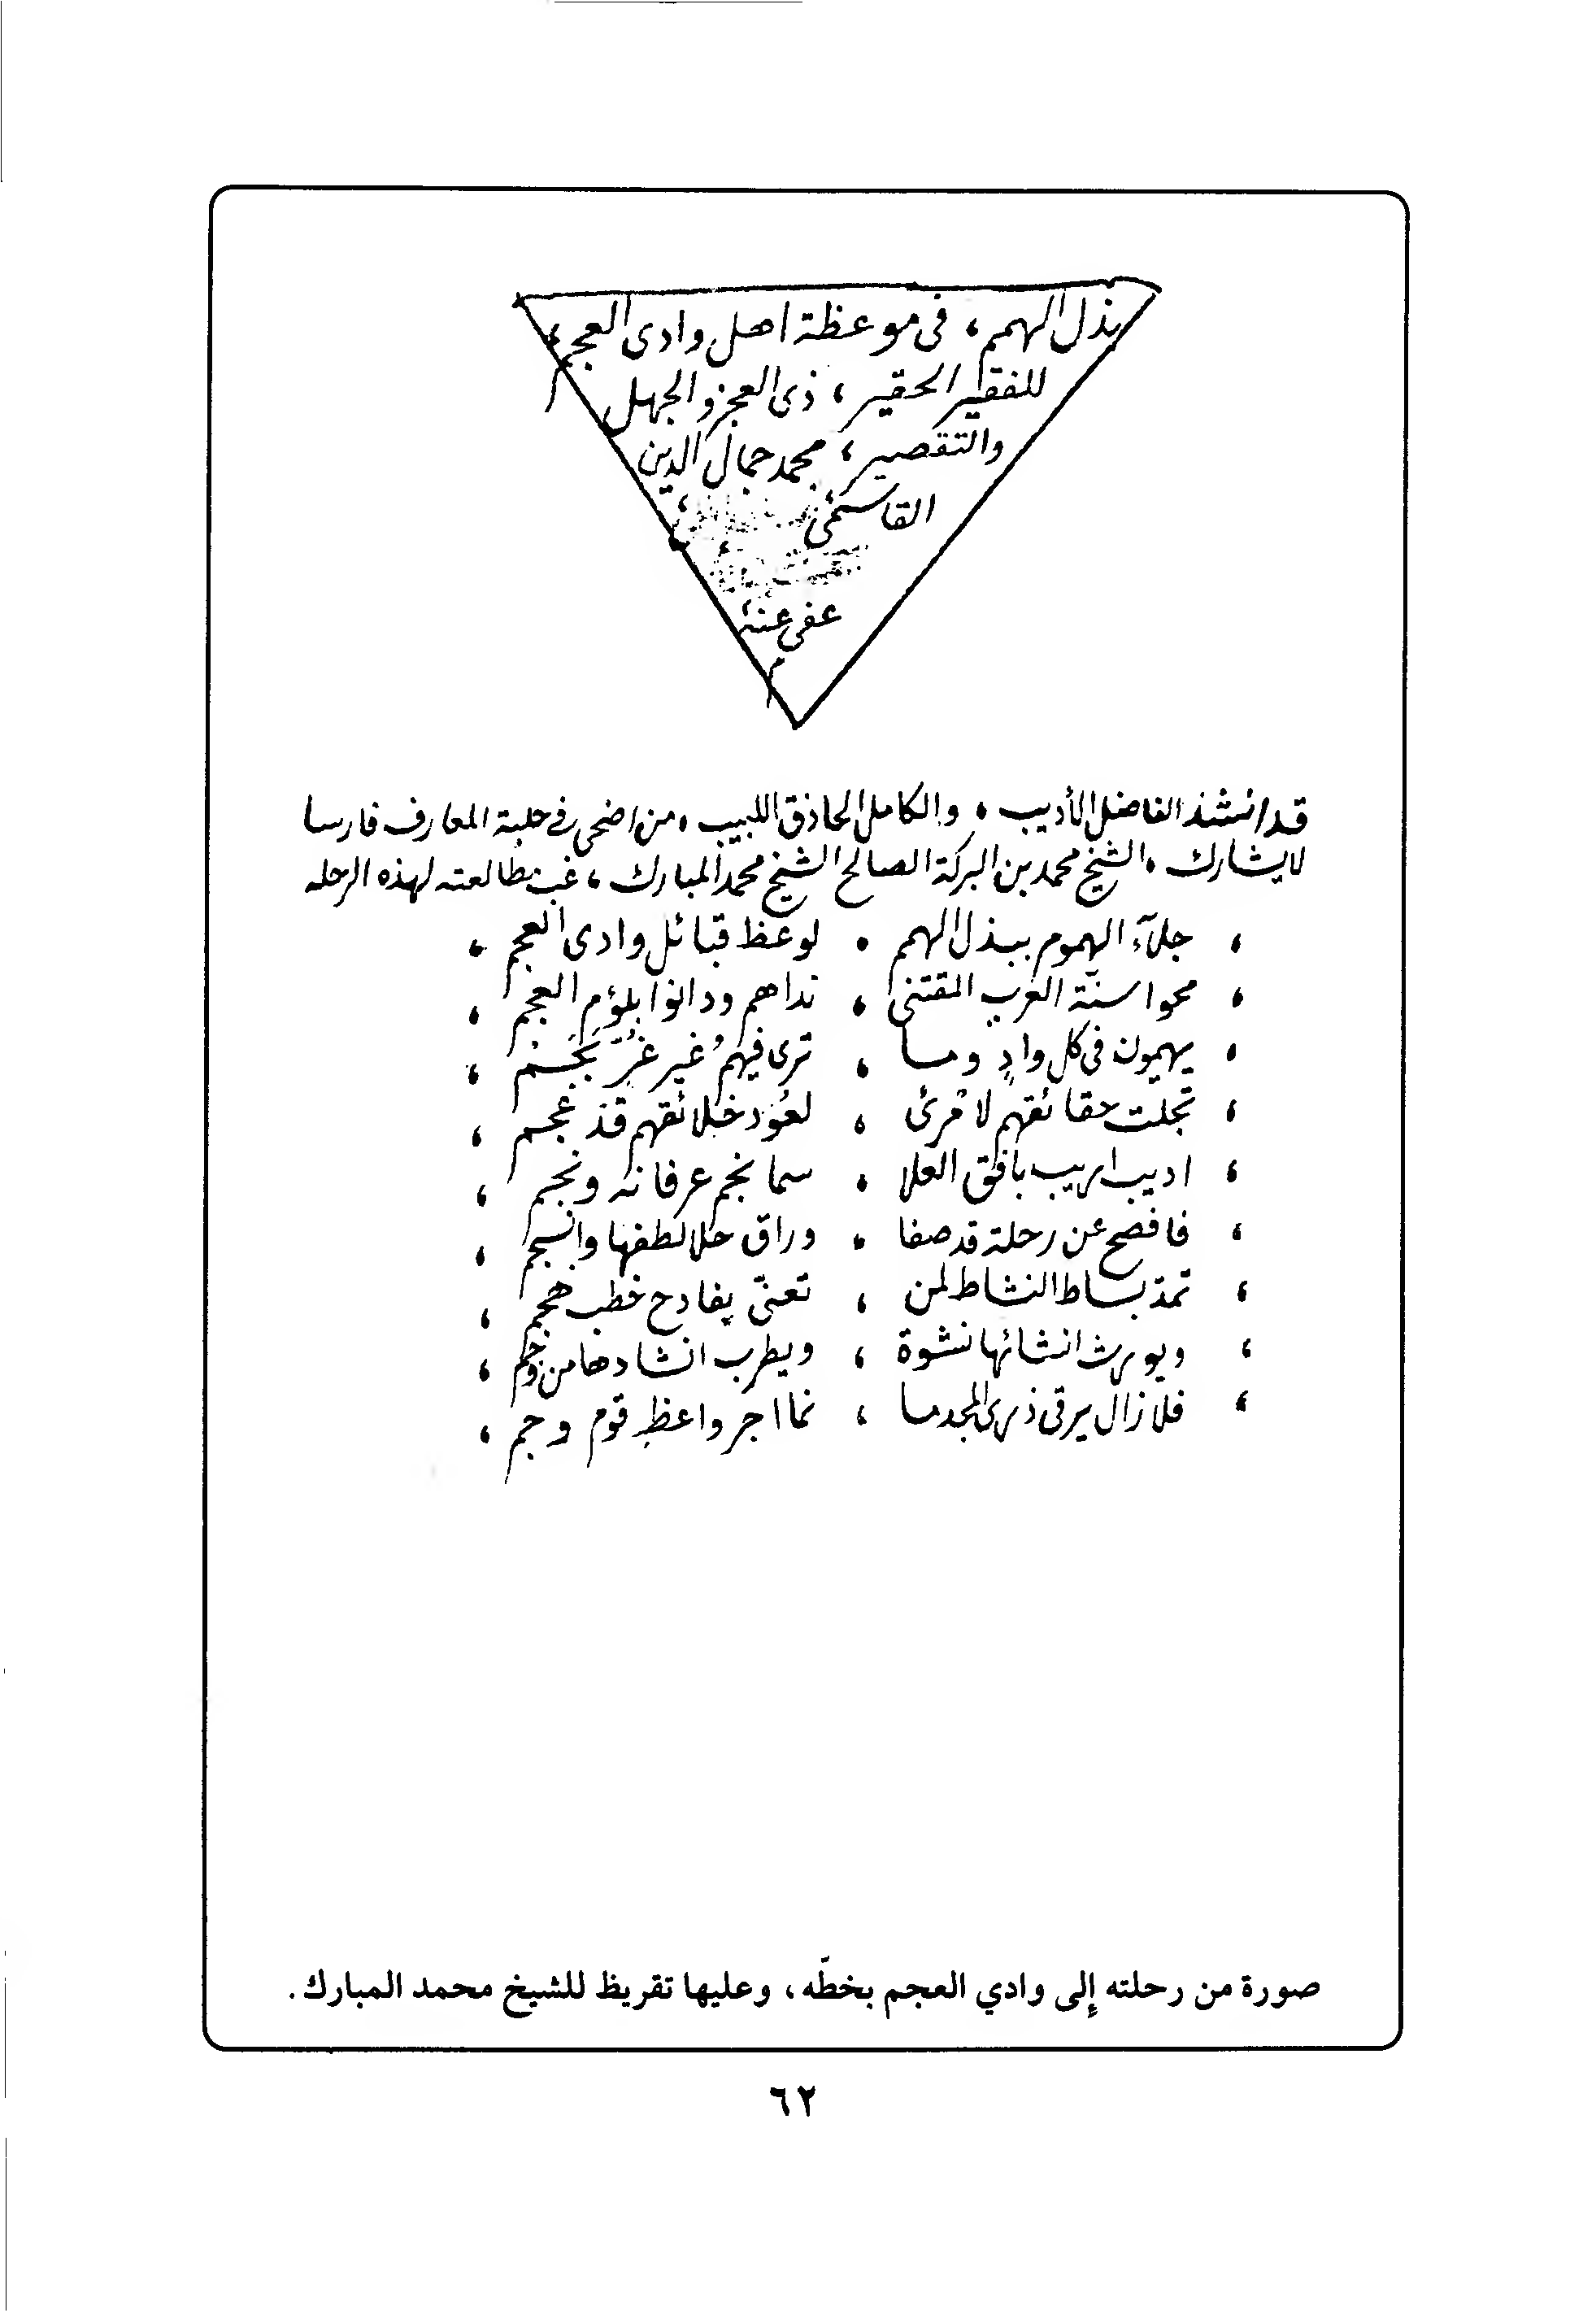 بذل الهمم ، فى موعظة اهل وادى العجم ،
للفقير الحقير ، ذى العجز والجهل
والتقصير ، محمد جمال الدين
القاسمى
عفى عنه
قد انشد الفاضل الأديب ، والكامل الحاذق اللبيب ، من اضحى فى حلبة المعارف فارسا
لا يشارك ، الشيخ محمد بن البركة الصالح الشيخ محمد المبارك ، غب مطالعته لهذه الرحله
، جلآء الهموم ببذل الهمم ، لوعظ قبائل وادى العجم ،
، محوا سنّة العرب المقتنى ، نداهم ودانوا بلؤم العجم ،
، يهيمون فى كل وادٍ وما ، ترى فيهمُ غير غرّ
، تجلت حقائقهم لامرئ ، لعود خلائقهم قد عجم ،
، اديب اريب بافق العلا ، سما نجم عرفانه ونجم ،
، فافصح عن رحلة قد صفا ، وراق حلا لطفها وانسجم ،
، تمد بساط النشاط لمن ، تعنّى بفادح خطب هجم ،
، ويورث انشائها نشوة ، ويطرب انشادها من وجم ،
، فلا زال يرقى ذرى المجد ما ، نما اجر واعظِ قوم وجم ،
صورة من رحلته إلى وادي العجم بخطّه، وعليها تقريظ للشيخ محمد المبارك.
٦٢